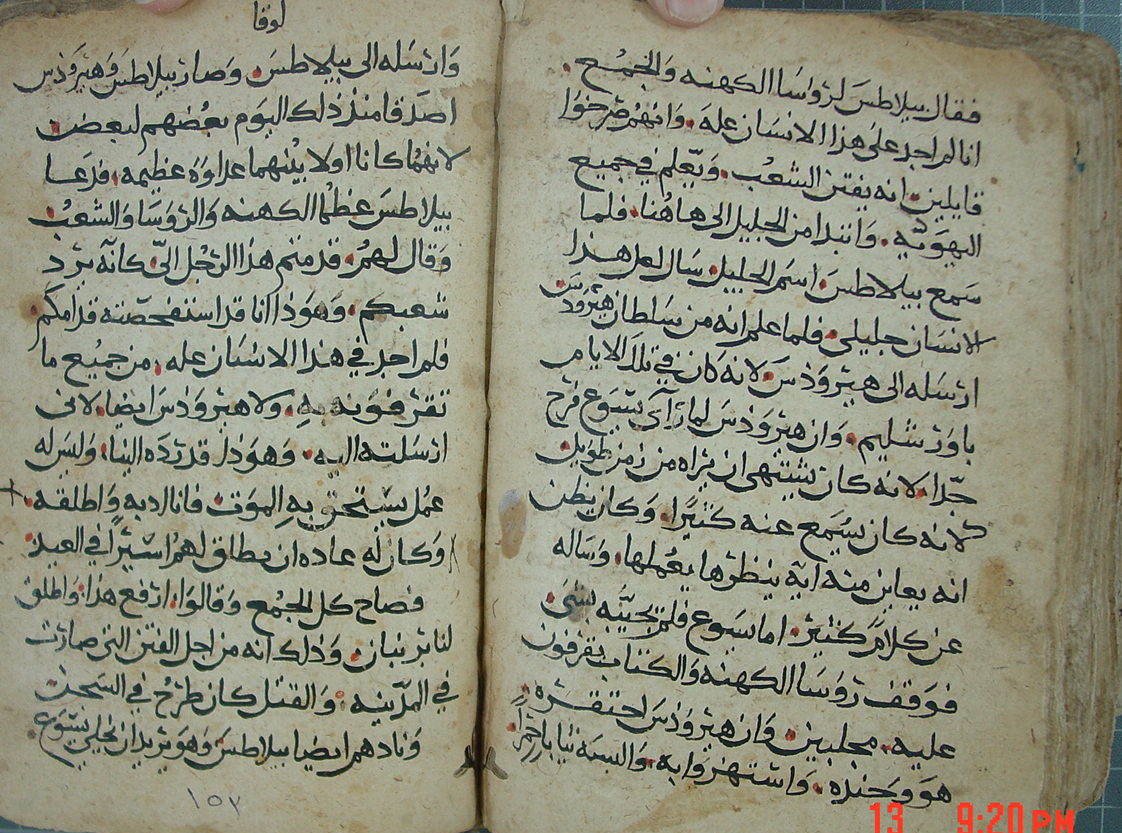 فقال بيلاطس لرووسا الكهنه والجميع.
انا لم اجد على هذا الانسان عله. وانهم صرخوا
قايلين. انه يفتن الشعب. ويعلم في جميع
اليهوديه. وابتدا من الجليل الى هاهنا. فلما
سمع بيلاطس. اسم الجليل. سال لعل هذا
الانسان جليلي. فلما علم انه من سلطان هيرودس
ارسله الى هيرودس. لانه كان في تلك الايام
باورشليم. وان هيرودس لما رآى يسوع فرح
جدا. لانه كان يشتهي ان يراه من زمن طويل.
لانه كان يسمع عنه كثيرا. وكان يظن
انه يعاين منه اية ينظرها يعملها. وساله
عن كلام كثير. اما يسوع فلم يجيبه بشي.
فوقف رووسا الكهنه والكتاب يقرفون
عليه. مجلبين. وان هيرودس احتقره.
هو وجنده. واستهزوا به. والبسه ثيابا حمرا.
لوقا
وارسله الى بيلاطس. وصار بيلاطس وهيرودس
اصدقا منذ ذلك اليوم بعضهم لبعض.
لانهما كانا اولا بينهما عداوه عظيمه. فدعا
بيلاطس عظما الكهنه والرووسا والشعب.
وقال لهم. قدمتم هذا الرجل الي. كانه يرد
شعبكم. وهوذا انا قد استفحصته قدامكم.
فلم اجد في هذا الانسان عله. من جميع ما
تقرفونه به. ولا هيرودس ايضا. لاني
ارسلته اليه. وهوذا قد رده الينا. وليس له
عمل يستحق به الموت. فانا ادبه واطلقه.
وكان له عاده ان يطلق لهم اسيرا في العيد.
فصاح كل الجمع وقالوا. ارفع هذا. واطلق
لنا برنبان. وذلك انه من اجل الفتن التي صارت
في المدينه. والقتل كان طرح في السجن.
وناداهم ايضا بيلاطس وهو يريد ان يخلي يسوع
١٥٢
13 9:20 PM